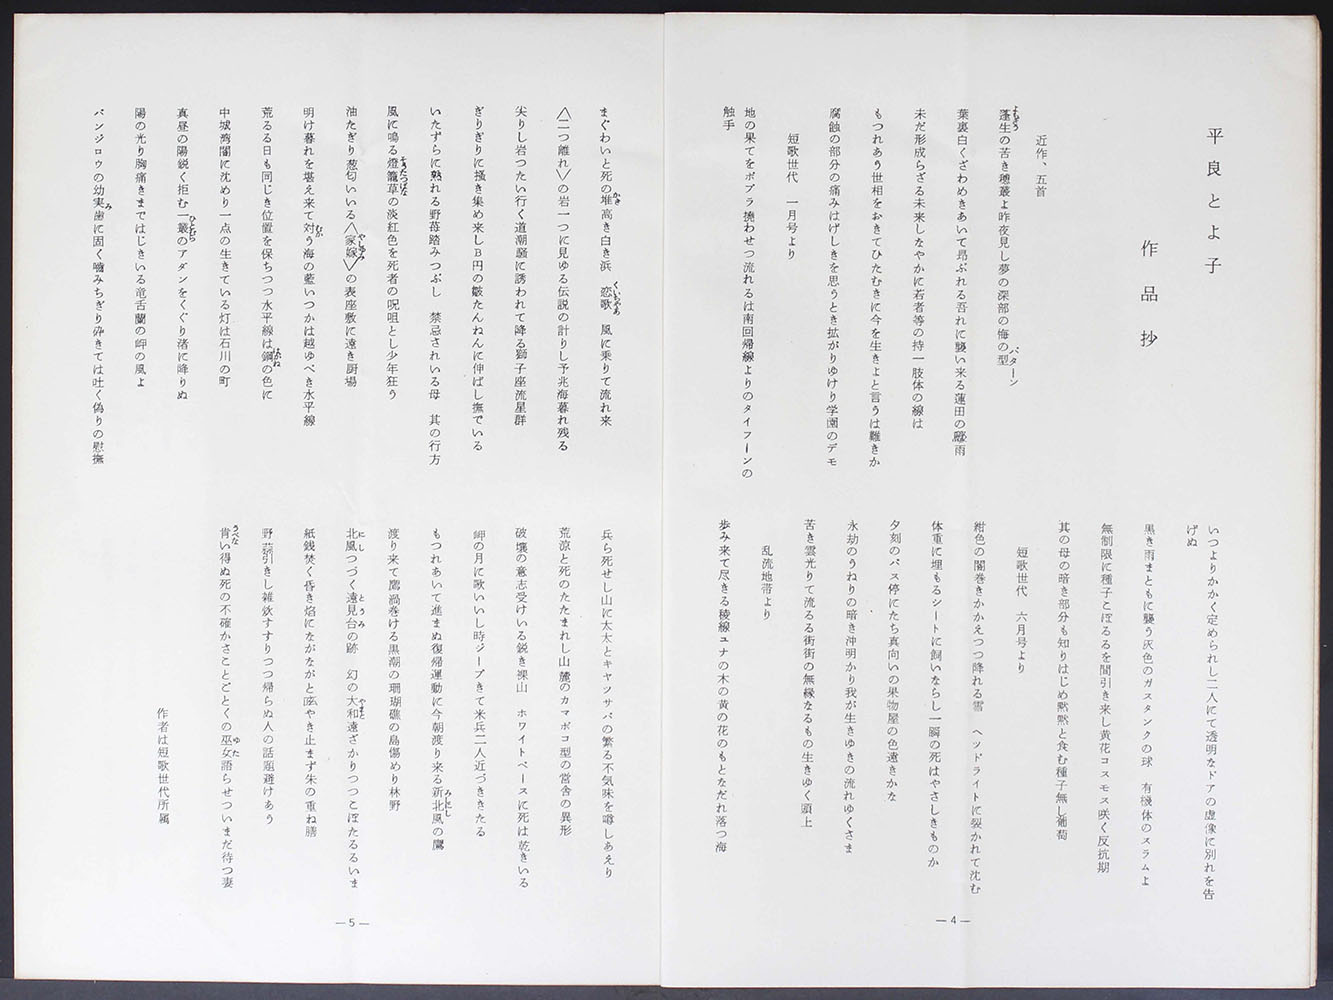 平良とよ子
作品抄
近作、五首
蓬生の苦き穂叢よ昨夜見し夢の深部の悔の型
よもぎう
パターン
葉裏白くざわめきあいて昂ぶれる吾れに襲い来る蓮田の驟雨
未だ形成らざる未来しなやかに若者等の持一肢体の線は
もつれあう世相をおきてひたむきに今を生きよと言うは難きか
腐蝕の部分の痛みはげしきを思うとき拡がりゆけり学園のデモ
短歌世代 一月号より
地の果てをポプラ撓わせつ流れるは南回帰線よりのタイフーンの
触手
いつよりかかく定められし二人にて透明なドアの虚像に別れを告
げぬ
黒き雨まともに襲う灰色のガスタンクの球 有機体のスラムよ
無制限に種子こぼるるを間引き来し黄花コスモス咲く反抗期
其の母の暗き部分も知りはじめ黙黙と食む種子無し葡萄
短歌世代 六月号より
紺色の闇巻きかかえつつ降れる雪 ヘッドライトに裂かれて沈む
体重に埋もるシートに飼いならし一瞬の死はやさしきものか
夕刻のバス停にたち真向いの果物屋の色遠きかな
永劫のうねりの暗き沖明かり我が生きゆきの流れゆくさま
苦き雲光りて流るる街街の無縁なるもの生きゆく頭上
乱流地帯より
歩み来て尽きる稜線ユナの木の黄の花のもとなだれ落つ海
—4—
まぐわいと死の堆高き白き浜 恋歌 風に乗りて流れ来
かさ
くいちゃあ
〈二つ離れ〉の岩一つに見ゆる伝説の計りし予兆海暮れ残る
尖りし岩つたい行く道潮騒に誘われて降る獅子座流星群
ぎりぎりに掻き集め来しB円の皺たんねんに伸ばし撫でいる
いたずらに熟れる野苺踏みつぶし 禁忌されいる母 其の行方
風に鳴る燈籠草の淡紅色を死者の呪咀とし少年狂う
油たぎり葱匂いいる〈家嫁〉の表座敷に遠き厨場
明け暮れを堪え来て対う海の藍いつかは越ゆべき水平線
むか
荒るる日も同じき位置を保ちつつ水平線は鋼の色に
はがね
中城湾闇に沈めり一点の生きている灯は石川の町
真昼の陽鋭く拒む一叢のアダンをくぐり渚に降りぬ
ひとむら
陽の光り胸痛きまではじきいる竜舌蘭の岬の風よ
バンジロウの幼実歯に固く嚙みちぎり砕きては吐く偽りの慰撫
み
兵ら死せし山に太太とキヤツサバの繁る不気味を噂しあえり
荒涼と死のたたまれし山麓のカマボコ型の営舎の異形
破壊の意志受けいる鋭き裸山 ホワイトベースに死は乾きいる
岬の月に歌いいし時ジープきて米兵二人近づききたる
もつれあいて進まぬ復帰運動に今朝渡り来る新北風の鷹
みーにし
渡り来て鷹渦巻ける黒潮の珊瑚礁の島傷めり林野
北風つづく遠見台の跡 幻の大和遠ざかりつつこぼたるるいま
にし
とうみ
やまと
紙銭焚く昏き焰にながながと呟やき止まず朱の重ね膳
野蒜引きし雑炊すすりつつ帰らぬ人の話題避けあう
肯い得ぬ死の不確かさことごとくの巫女語らせついまだ待つ妻
うべな
ゆた
作者は短歌世代所属
—5—